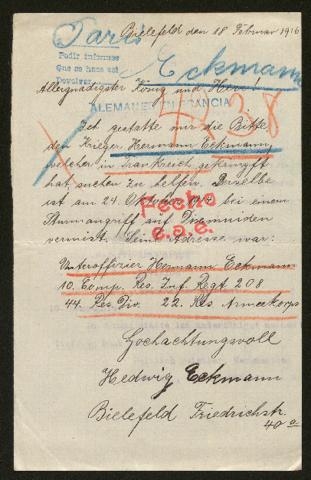 Bielefeld den 18 Februar 1916
Paris
Pedir informes
Que se hace así
Devolver
Eckmann
Allergnädigster König und Herr!
ALEMANES EN FRANCIA
Ich gestatte mir die Bitte
den Krieger Hermann Eckmann
welcher in Frankreich gekämpft
hat suchen zu helfen. Derselbe
ist am 24. Oktober 1914 bei einem
Sturmangriff auf
vermißt. Seine Adresse war:
Fecho
Unteroffizier Hermann Eckmann
10. Comp. Res. Inf. Regt 208
44. Res. Div. 22. Res. Armeekorps
Hochachtungsvoll
Hedwig Eckmann
Bielefeld Friedrichstr.
40 a